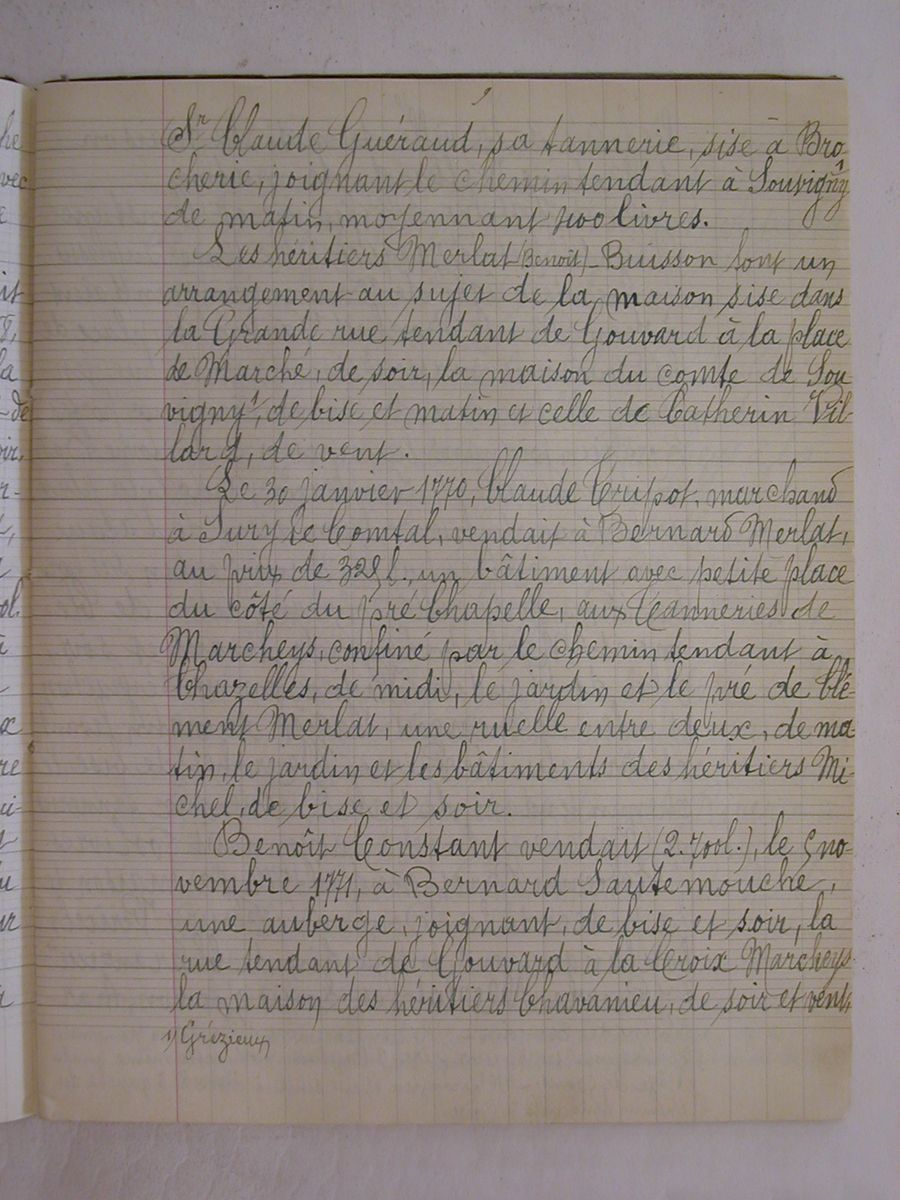 Sr Claude Guéraud, sa tannerie, sise à Bro-
cherie, joignant le chemin tendant à Souvigny 1
de matin, moyennant livres.
Les héritiers Merlat (Benoît)-Buisson font un
arrangement au sujet de la maison sise dans
la Grande rue tendant de Gouvard à la place
de Marché, de soir, la maison du comte de Sou
vigny 1, de bise et matin et celle de Catherin Vil-
lard, de vent.
Le 30 janvier 1770, Claude Tripot, marchand
à Sury le Comtal, vendait à Bernard Merlat,
au prix de l., un bâtiment avec petite place
du côté du pré Chapelle, aux Tanneries de
Marcheys, confiné par le chemin tendant à
Chazelles, de midi, le jardin et le pré de Clé-
ment Merlat, une ruelle entre deux, de ma-
tin, le jardin et les bâtiments des héritiers Mi-
chel, de bise et soir.
Benoît Constant vendait (2.700l.), le 5 no-
vembre 1771, à Bernard Sautemouche,
une auberge, joignant, de bise et soir, la
rue tendant de Gouvard à la Croix Marcheys
la maison des héritiers Chavanieu, de soir et vent,
1) Grézieux